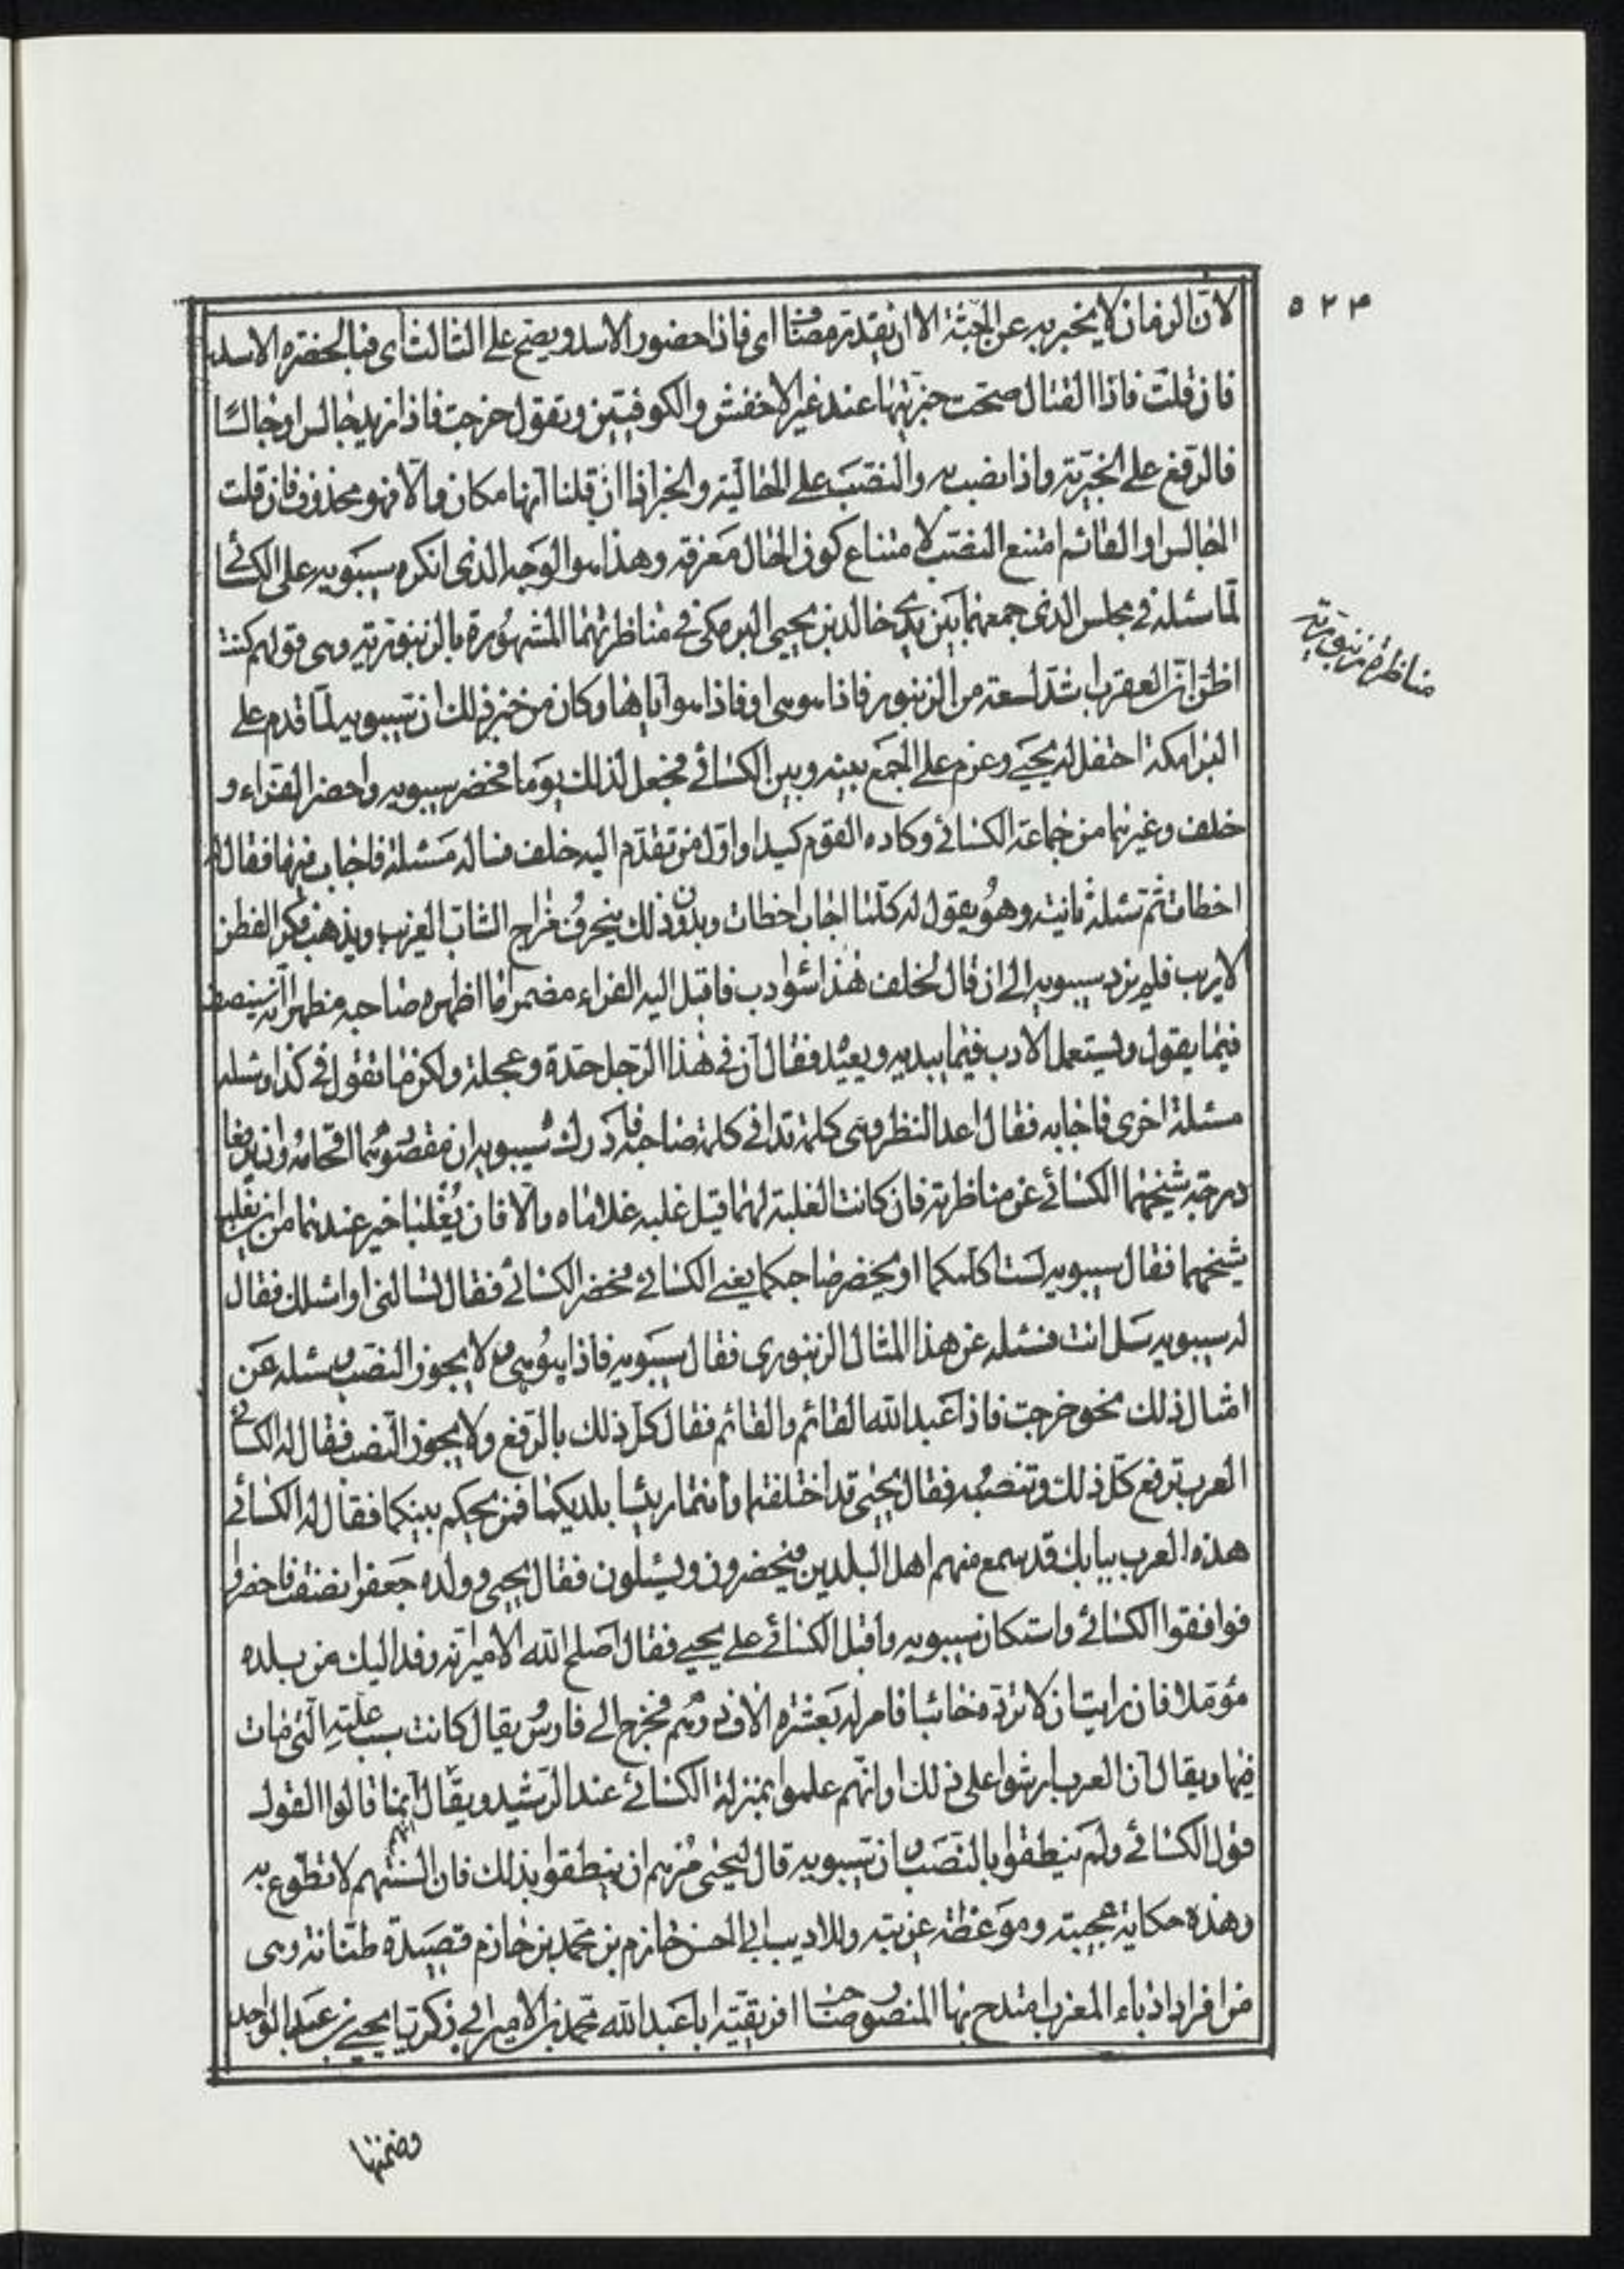 ٥٢٤
لانّ الزمان لا يخبر به عن الجثة الا ان يقدّر مضاف اى فاذا حضور الاسد ويصح على الثالث اى فبالحضرة الاسد
فان قلت فاذا القتال صحت خبريتها عند غير الاخفش والكوفيين وتقول خرجت فاذا زيد جالس او جالسًا
فالرفع على الخبرية واذا نصب به والنصب على الحالية والخبر اذا ان قلنا انها مكان والا فهو محذوف فان قلت
الجالس او القائم امتنع النصب لامتناع كون الحال معرفة وهذا هو الوجه الذى انكره سيبويه على الكسائى
لما سئله فى مجلس الذى جمعهما بين يدى خالد بن يحيى البرمكى فى مناظرتهما المشهورة بالزنبورية وهى قولهم كنت
مناظرة زنبورية
اظن ان العقرب اشد لسعة من الزنبور فاذا هو هى او فاذا هو اياها وكان من خبر ذلك ان سيبويه لما قدم على
البرامكة احتفل له يحيى وعزم على الجمع بينه وبين الكسائى فجعل لذلك يوما فحضر سيبويه واحضر الفراء و
خلف وغيرهما من جماعة الكسائى وكاده القوم كيدا واول من تقدم اليه خلف فساله مسئلة فاجاب فيها فقال له
اخطات ثم سئله ثانية وهو يقول له كلما اجاب اخطات وبدون ذلك ينحرف مزاج الشاب الغريب ويذهب فكر الفطن
لاريب فلم يزد سيبويه الى ان قال لخلف هذا سوادب فاقبل اليه الفراء مضمرا ما اظهره صاحبه مظهرا انه ينصف
فيما يقول ويستعمل الادب فيما يبديه ويعيد فقال ان فى هذا الرجل حدة وعجلة ولكن ما تقول فى كذا وسئله
مسئلة اخرى فاجابه فقال اعد النظر وهى كلمة تدافى كلمة صاحبه فادرك سيبويه ان مقصودهما اقحامه وان يدفعا
درجة شيخهما الكسائى عن مناظرته فان كانت الغلبة لهما قيل غلبه غلاماه والا فان يغلبا خير عندهما من ان يغلب
شيخهما فقال سيبويه لست اكلمكما او يحضر صاحبكما يعنى الكسائى فحضر الكسائى فقال تسالنى او اسئلك فقال
له سيبويه سل انت فسئله عن هذا المثال الزنبورى فقال سيبويه فاذا هو هى ولا يجوز النصب وسئله عن
امثال ذلك نحو خرجت فاذا عبد الله القائم والقائم فقال كل ذلك بالرفع ولا يجوز النصب فقال له الكسائى
العرب ترفع كل ذلك وتنصبه فقال يحيى قد اختلفتما وانتما رئيسا بلديكما فمن يحكم بينكما فقال له الكسائى
هذه العرب ببابك قد سمع منهم اهل البلدين فيحضرون ويسئلون فقال يحيى وولده جعفر انصفت فاحضروا
فوافقوا الكسائى واستكان سيبويه واقبل الكسائى على يحيى فقال اصلح الله الامير انه وفد اليك من بلده
مؤملا فان رايت ان لا ترده خائبا فامر له بعشرة الاف درهم فخرج الى فارس يقال كانت سبب علته التى مات
فيها ويقال ان العرب ارشوا على ذلك او انهم علموا بمنزلة الكسائى عند الرشيد ويقال انما قالوا القول
قول الكسائى ولم ينطقوا بالنصب وان سيبويه قال ليحيى مرهم ان ينطقوا بذلك فان السنتهم لا تطوع به
وهذه حكاية عجيبة وموعظة غريبة وللاديب ابى الحسن حازم بن محمد بن حازم قصيدة طنانة وهى
من افراد ادباء المغرب امتدح بها المنصور صاحب افريقية ابا عبد الله محمد بن الامير ابى زكريا يحيى بن عبد الواحد
وضمنها